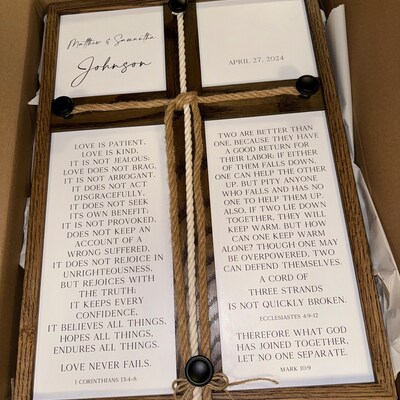 Matthew & Samantha
Johnson
APRIL 27, 2024
LOVE IS PATIENT,
LOVE IS KIND.
IT IS NOT JEALOUS;
LOVE DOES NOT BRAG,
IT IS NOT ARROGANT.
IT DOES NOT ACT
DISGRACEFULLY,
IT DOES NOT SEEK
ITS OWN BENEFIT;
IT IS NOT PROVOKED,
DOES NOT KEEP AN
ACCOUNT OF A
WRONG SUFFERED,
IT DOES NOT REJOICE IN
UNRIGHTEOUSNESS,
BUT REJOICES WITH
THE TRUTH;
IT KEEPS EVERY
CONFIDENCE,
IT BELIEVES ALL THINGS,
HOPES ALL THINGS,
ENDURES ALL THINGS.
LOVE NEVER FAILS.
1 CORINTHIANS 13:4-8
TWO ARE BETTER THAN
ONE, BECAUSE THEY HAVE
A GOOD RETURN FOR
THEIR LABOR: IF EITHER
OF THEM FALLS DOWN,
ONE CAN HELP THE OTHER
UP. BUT PITY ANYONE
WHO FALLS AND HAS NO
ONE TO HELP THEM UP.
ALSO, IF TWO LIE DOWN
TOGETHER, THEY WILL
KEEP WARM. BUT HOW
CAN ONE KEEP WARM
ALONE? THOUGH ONE MAY
BE OVERPOWERED, TWO
CAN DEFEND THEMSELVES.
A CORD OF
THREE STRANDS
IS NOT QUICKLY BROKEN.
ECCLESIASTES 4:9-12
THEREFORE WHAT GOD
HAS JOINED TOGETHER,
LET NO ONE SEPARATE.
MARK 10:9